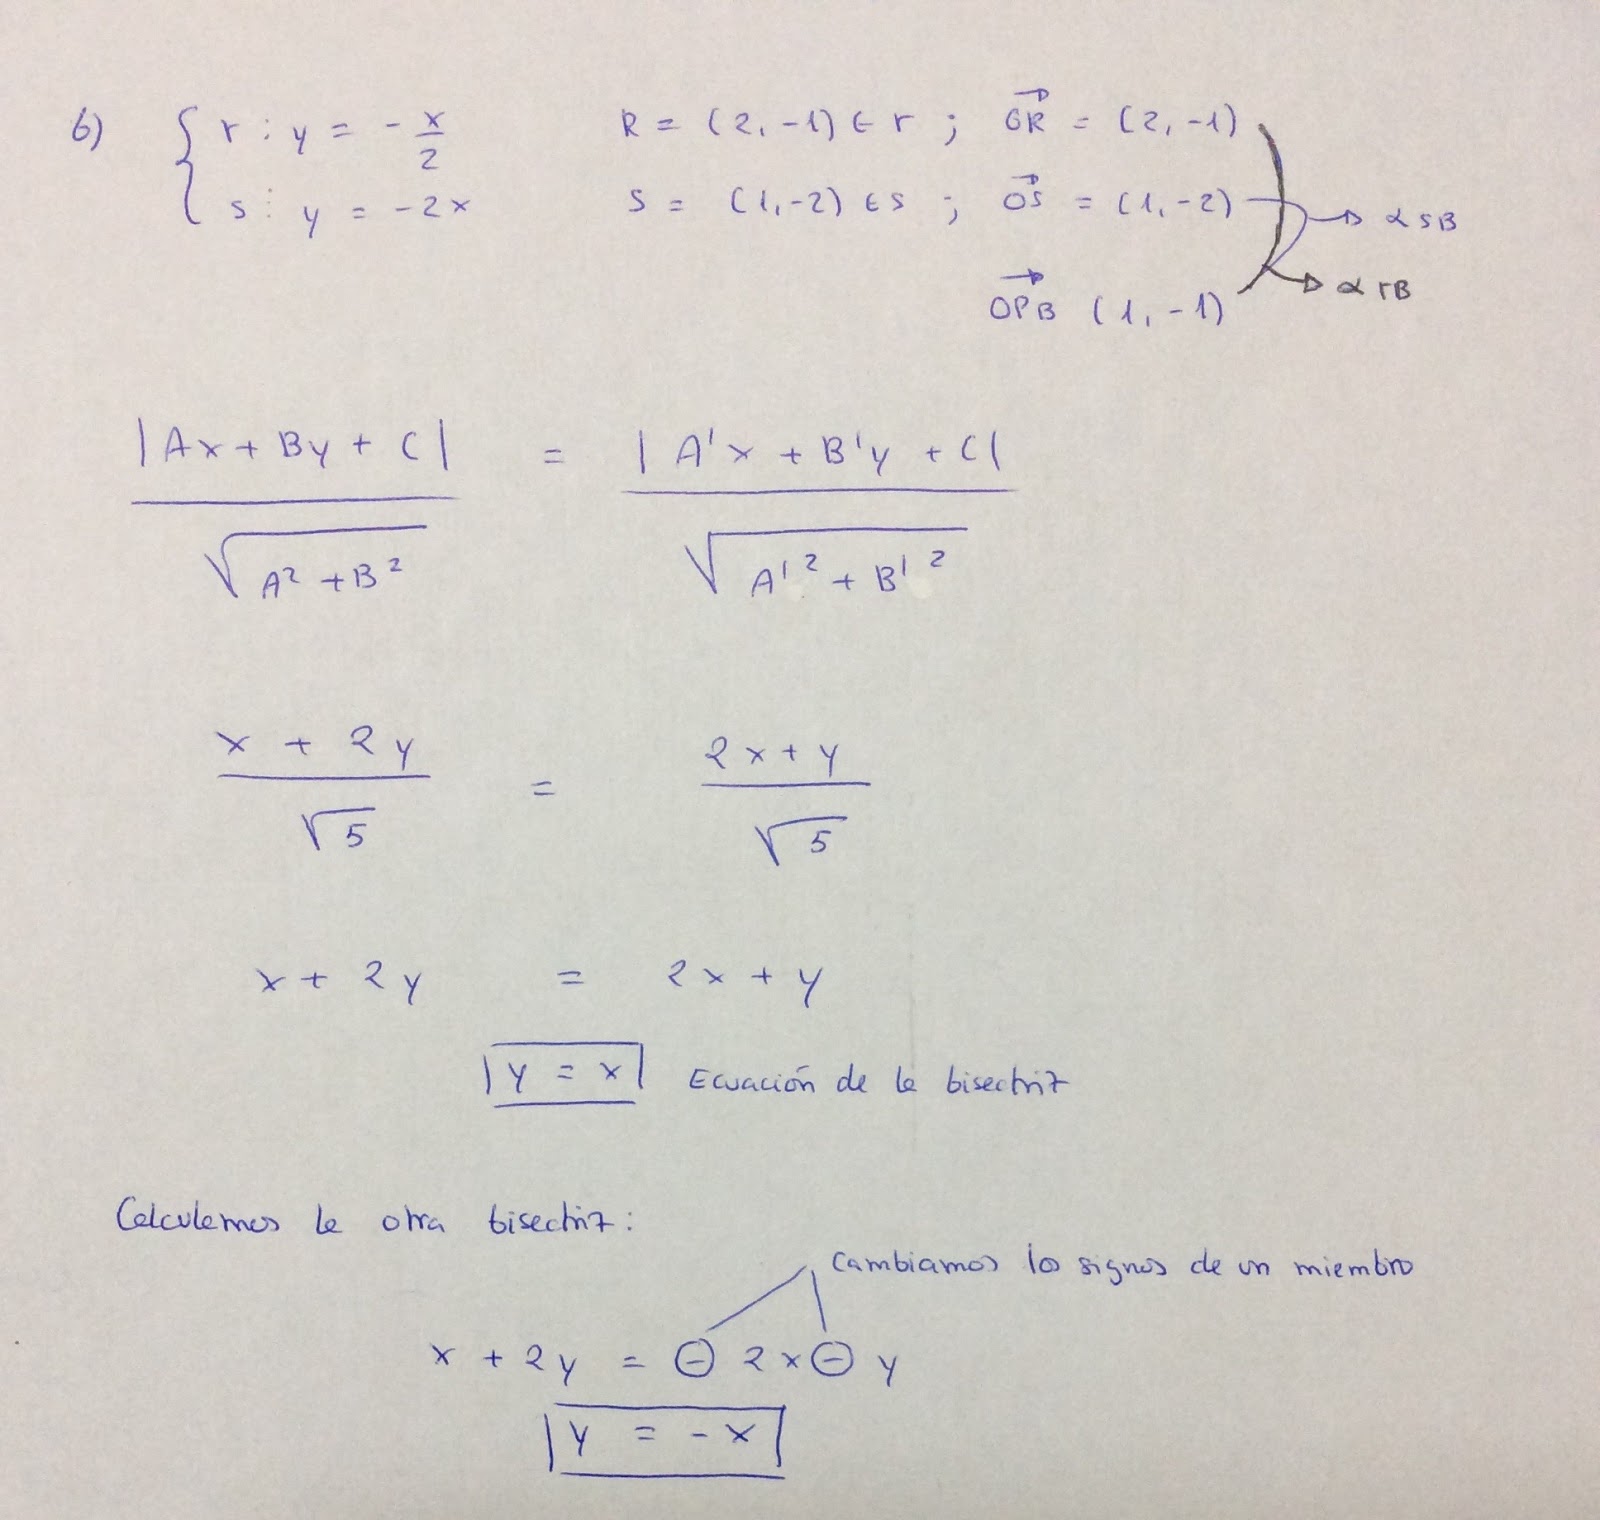 b) { r : y = - x/2    R = (2, -1) ∈ r ; OR = (2, -1)
s : y = -2x    S = (1, -2) ∈ s ; OS = (1, -2) → α SB
OPB (1, -1) → α rB
|Ax + By + C| / √(A² + B²) = |A'x + B'y + C| / √(A'² + B'²)
x + 2y / √5 = 2x + y / √5
x + 2y = 2x + y
y = x Ecuación de la bisectriz
Calculemos la otra bisectriz:
Cambiamos los signos de un miembro
x + 2y = - 2x - y
y = - x